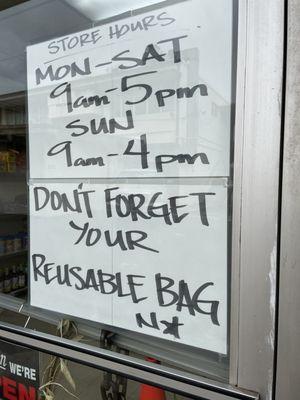 STORE HOURS
MON-SAT
9am-5pm
SUN
9am-4pm
DON'T FORGET
YOUR
REUSABLE BAG
WE'RE